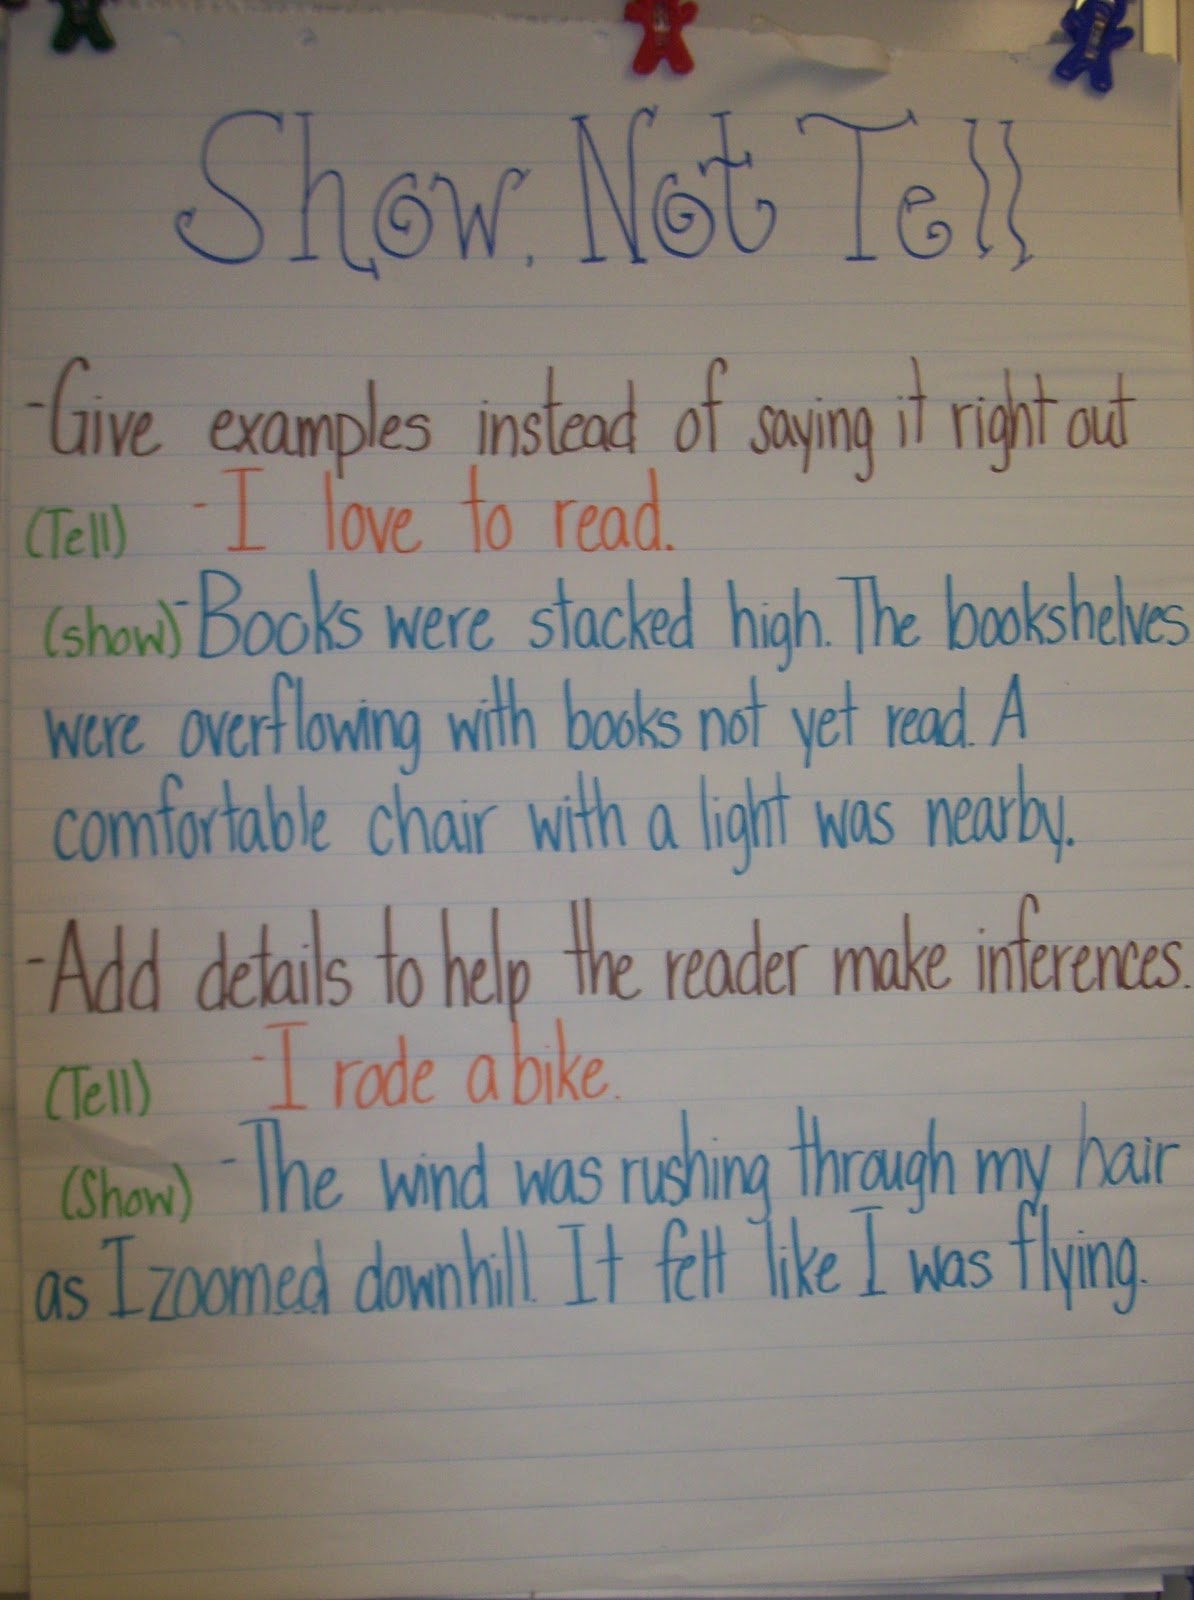 Show, Not Tell
-Give examples instead of saying it right out
(Tell) -I love to read.
(show)-Books were stacked high. The bookshelves
were overflowing with books not yet read. A
comfortable chair with a light was nearby.
-Add details to help the reader make inferences.
(Tell) -I rode a bike.
(Show) -The wind was rushing through my hair
as I zoomed downhill. It felt like I was flying.